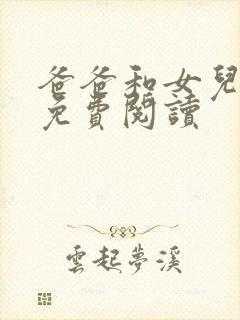 爸爸和女兒
免費閱讀
雲起夢溪